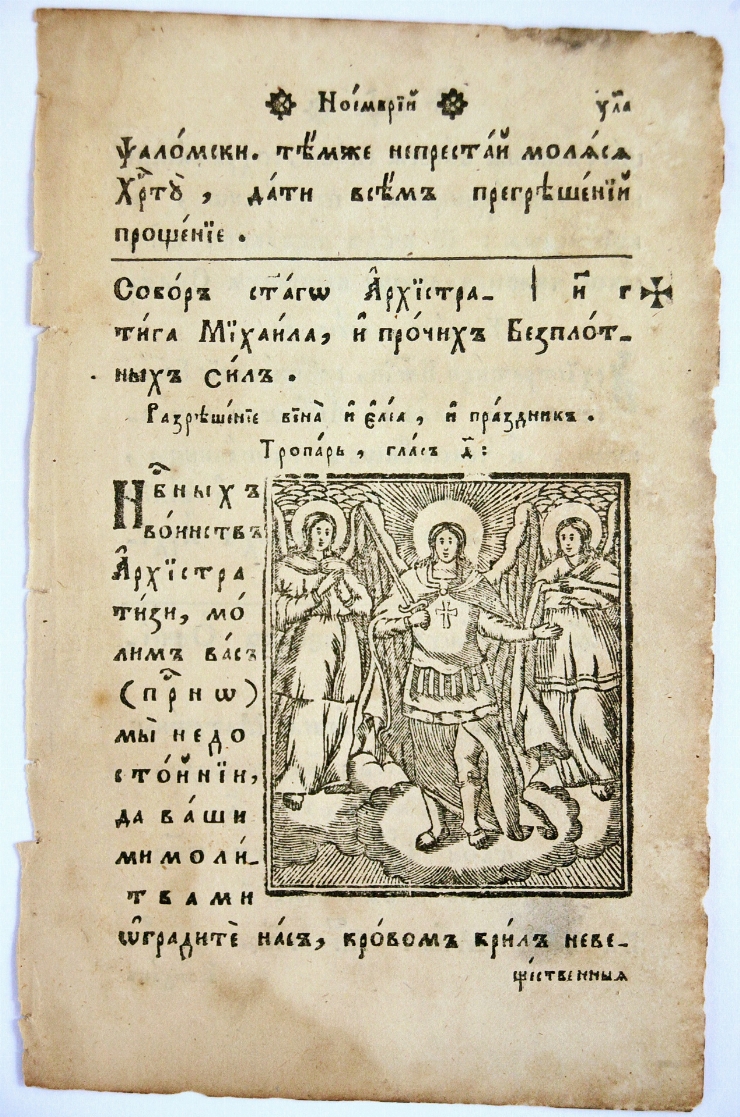 Ноемврїй ул҃а
Ѱало́мски. тѣ́мже непреста́й моля́сѧ
Хрⷭ҇тꙋ̀, да́ти всѣ̑мъ прегрѣше́нїй
проще́нїе.
Собо́ръ ст҃а́гѡ А҆рхїстра- и҃ г
ти́га Мїхаи́ла, и҆ про́чихъ Безпло́т-
ныхъ си́лъ.
Разрѣше́нїе вїна̀ и҆ є҆ле́а, и҆ пра́здникъ.
Тропа́рь, гла́съ д҃:
Нбⷭ҇ныхъ
во́инствъ
А҆рхїстра
ти́зи, мо́
лимъ ва́съ
(прⷭ҇нѡ)
мы̀ недо
сто́йнїи,
да ва́ши
ми моли́-
твами
ѡ҆градитѐ на́съ, кро́вомъ кри́лъ неве-
ще́ственныѧ